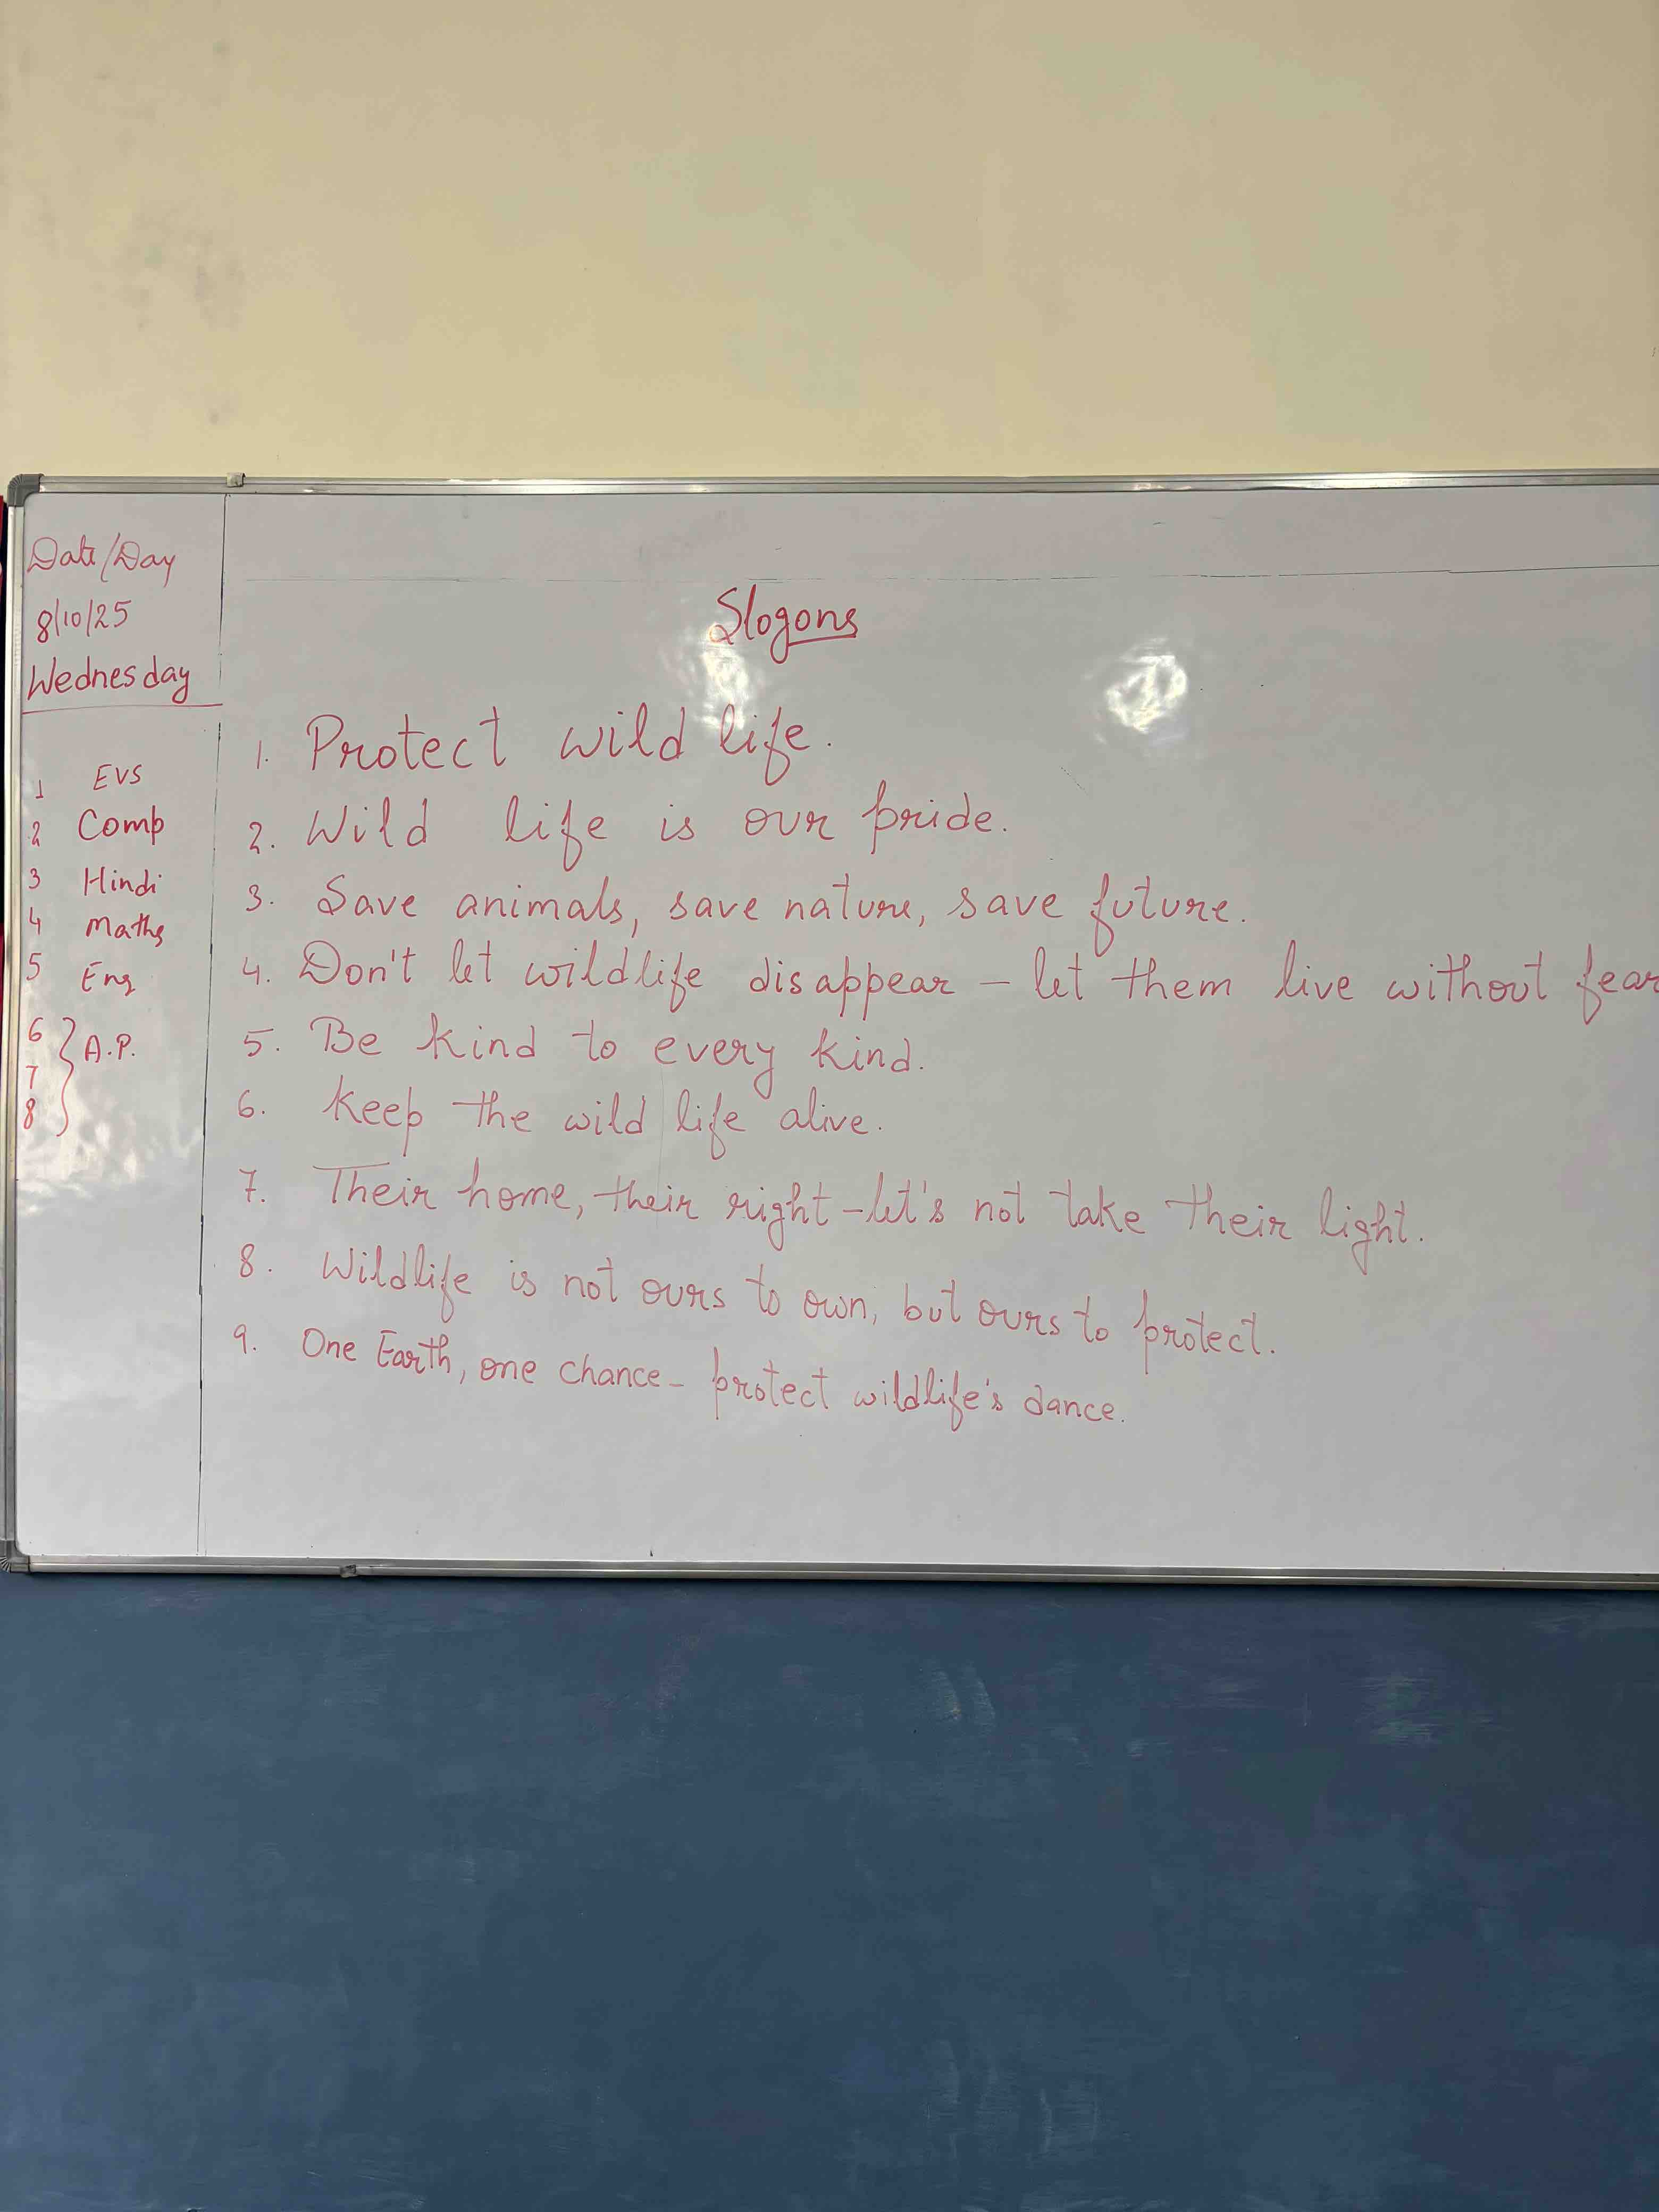 Date/Day
8/10/25
Wednesday
1 EVS
2 Comp
3 Hindi
4 Maths
5 Eng
6
7 } A.P.
8
Slogons
1. Protect wild life.
2. Wild life is our pride.
3. Save animals, save nature, save future.
4. Don't let wildlife disappear – let them live without fear
5. Be kind to every kind.
6. Keep the wild life alive.
7. Their home, their right – let's not take their light.
8. Wildlife is not ours to own, but ours to protect.
9. One Earth, one chance – protect wildlife's dance.